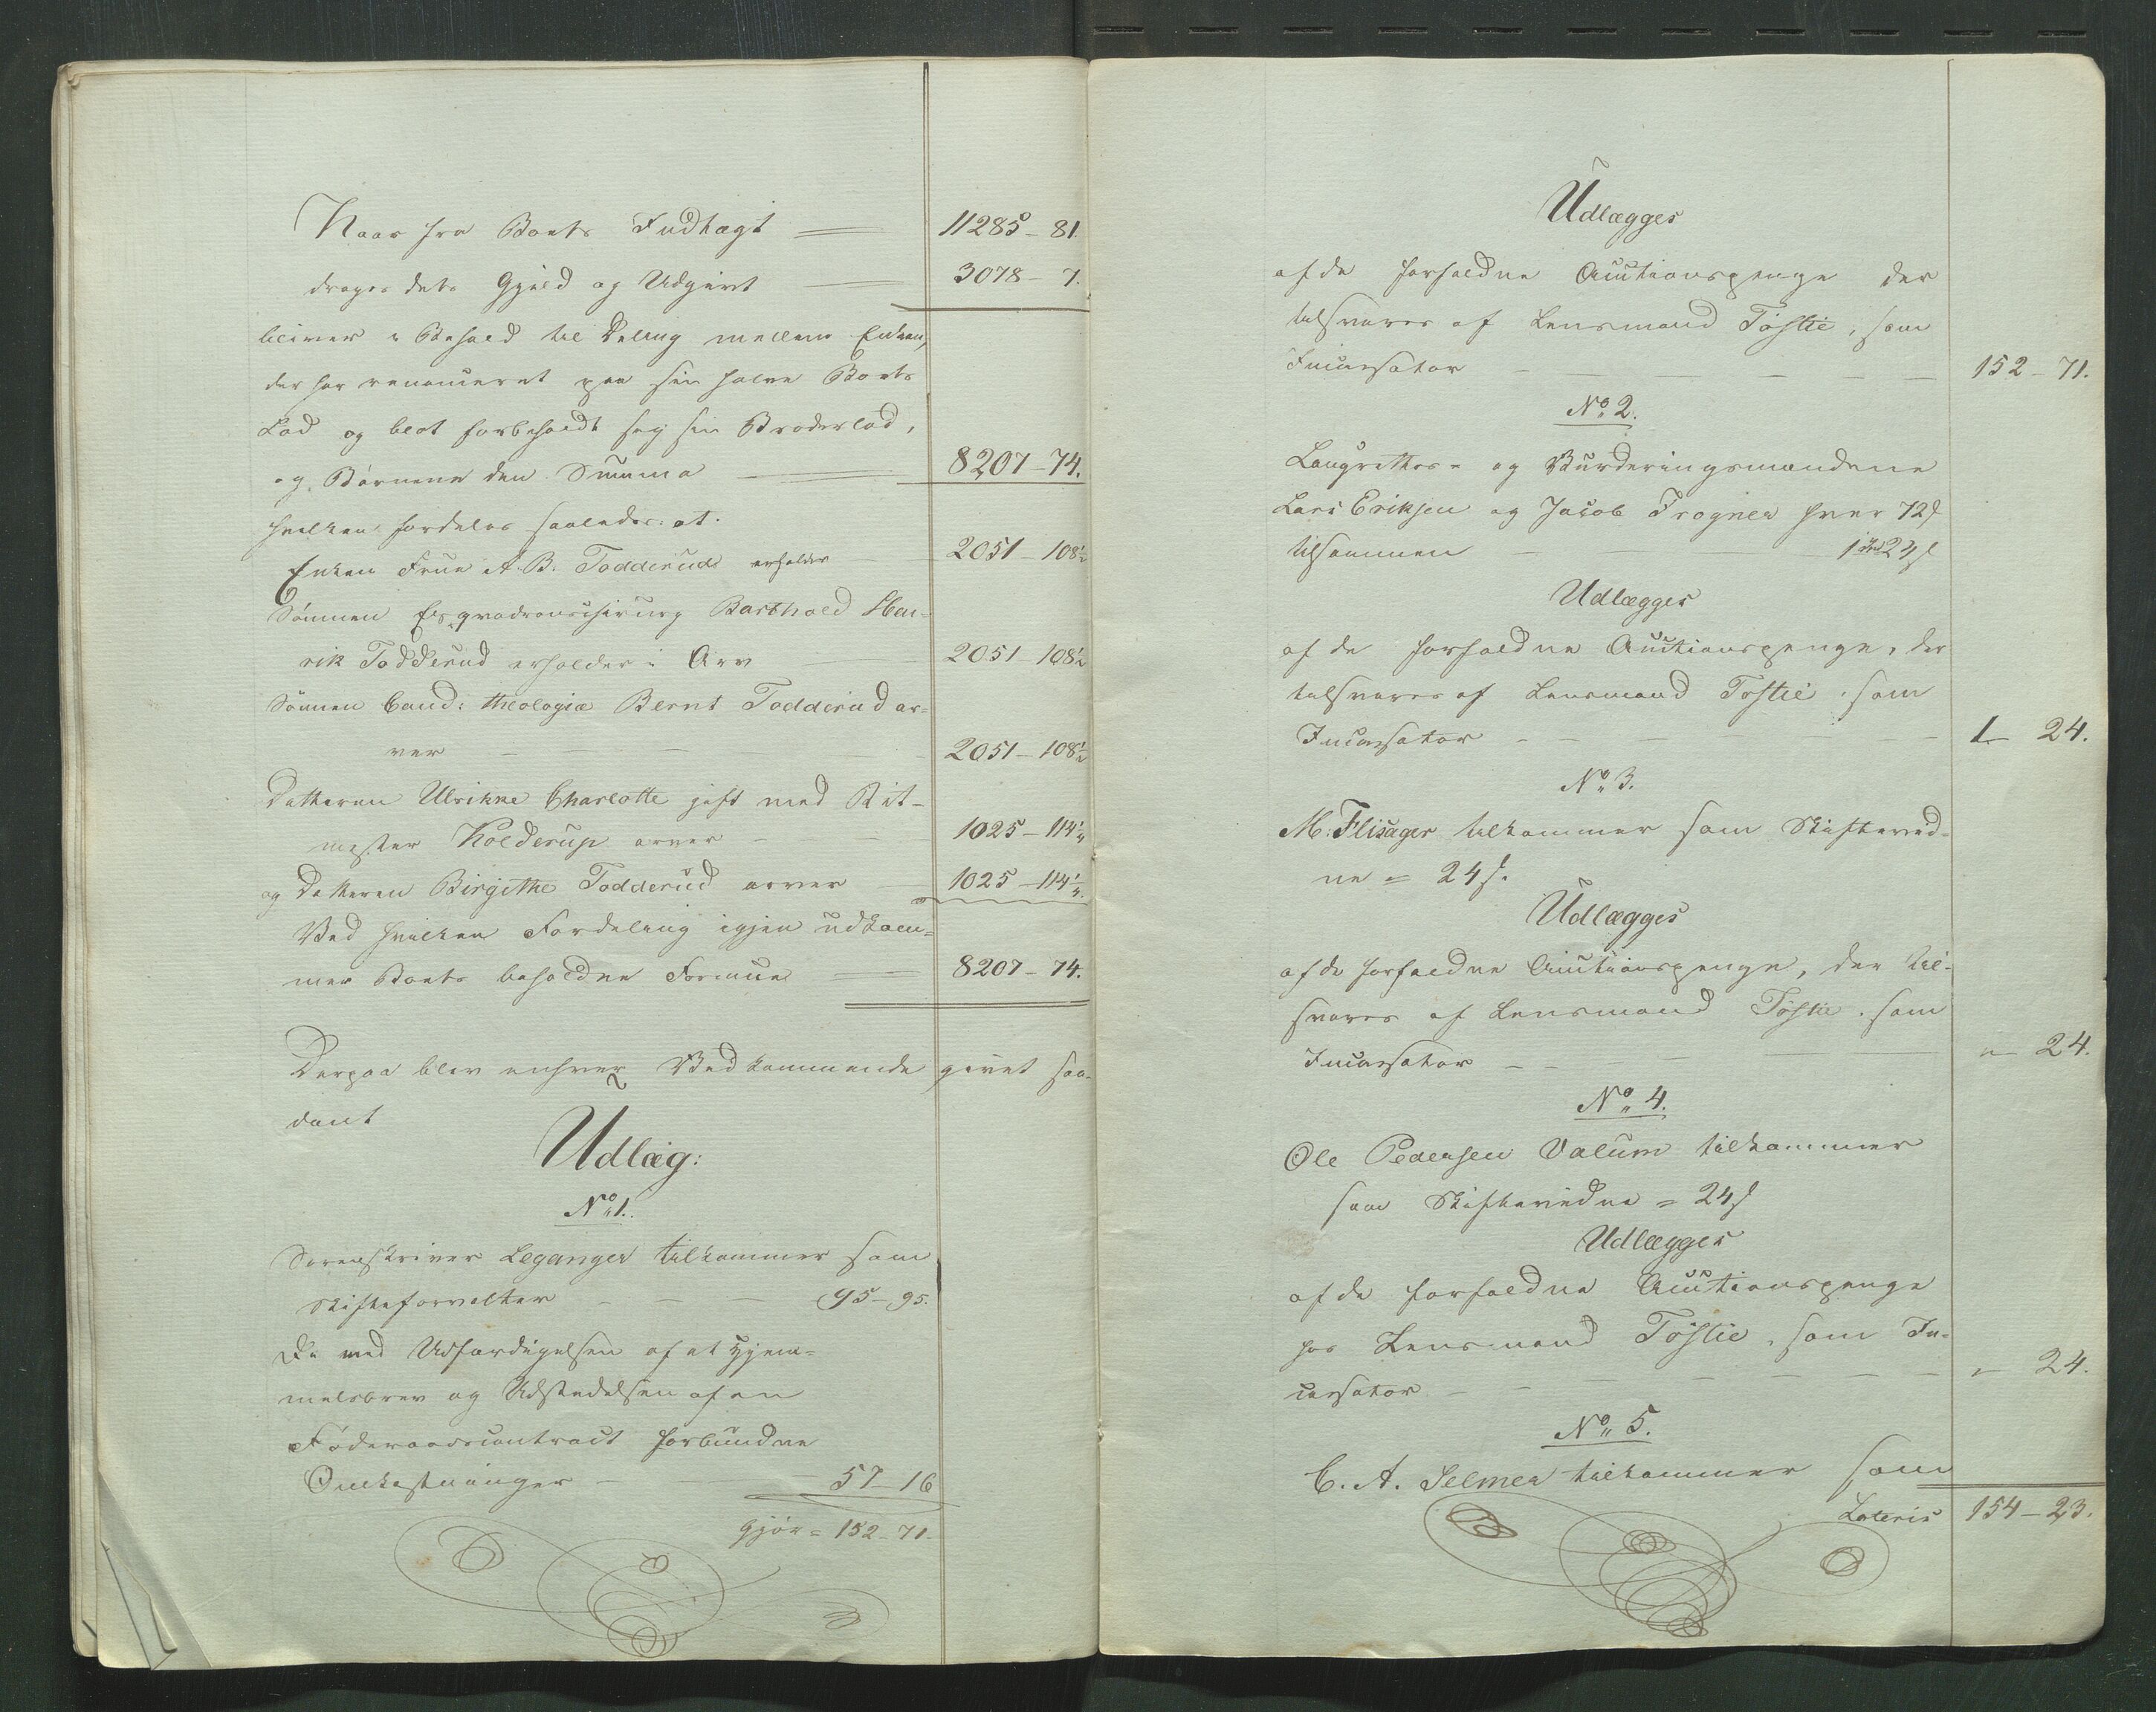 Naar fra Boets Indtægt 11285 - 81.
drages dets Gjæld og Udgivt 3078 - 7.
bliver i Behold til Deling mellem Enken,
der har renonceret paa sin halve Boets
Lod og blot forbeholdt sig sin Broderlod,
og Børnene den Summa 8207 - 74.
hvilken fordeles saaledes: at
Enken Frue A. B. Todderud erholder 2051 - 108½
Sønnen Esqvadronschirurg Barthold Hen-
rik Todderud erholder i Arv 2051 - 108½
Sønnen Cand: theologiæ Bernt Todderud ar-
ver 2051 - 108½
Datteren Ulrikke Charlotte gift med Rit-
mester Kolderup arver 1025 - 114¼
og Datteren Birgithe Todderud arver 1025 - 114¼.
Ved hvilken Fordeling igjen udkom-
mer Boets beholdne Formue 8207 - 74.
Derpaa blev enhver Vedkommende givet saa-
dant
Udlæg:
No. 1.
Sorenskriver Leganger tilkommer som
Skifteforvalter 95 - 95.
De med Udfærdigelsen af et Hjem-
melsbrev og Udstedelsen af en
Føderaadscontract forbundne
Omkostninger 57 - 16
Gjør = 152 - 71.
Udlægges
af de forfaldne Auctionspenge der
tilsvares af Lensmand Tøstie, som
Incassator 152 - 71.
No. 2.
Laugrettes- og Vurderingsmændene
Lars Eriksen og Jacob Frogner hver 72 s
tilsammen 1 Spd 24 s
Udlægges
af de forfaldne Auctionspenge, der
tilsvares af Lensmand Tøstie, som
Incassator 1 - 24.
No. 3.
M. Flisager tilkommer som Skiftevid-
ne = 24 s.
Udlægges
af de forfaldne Auctionspenge, der til-
svares af Lensmand Tøstie, som
Incassator " - 24.
No. 4.
Ole Pedersen Valum tilkommer
som Skiftevidne = 24 s
Udlægges
af de forfaldne Auctionspenge
hos Lensmand Tøstie, som In-
cassator " - 24.
No. 5.
C. A. Selmer tilkommer som
Lateris 154 - 23.